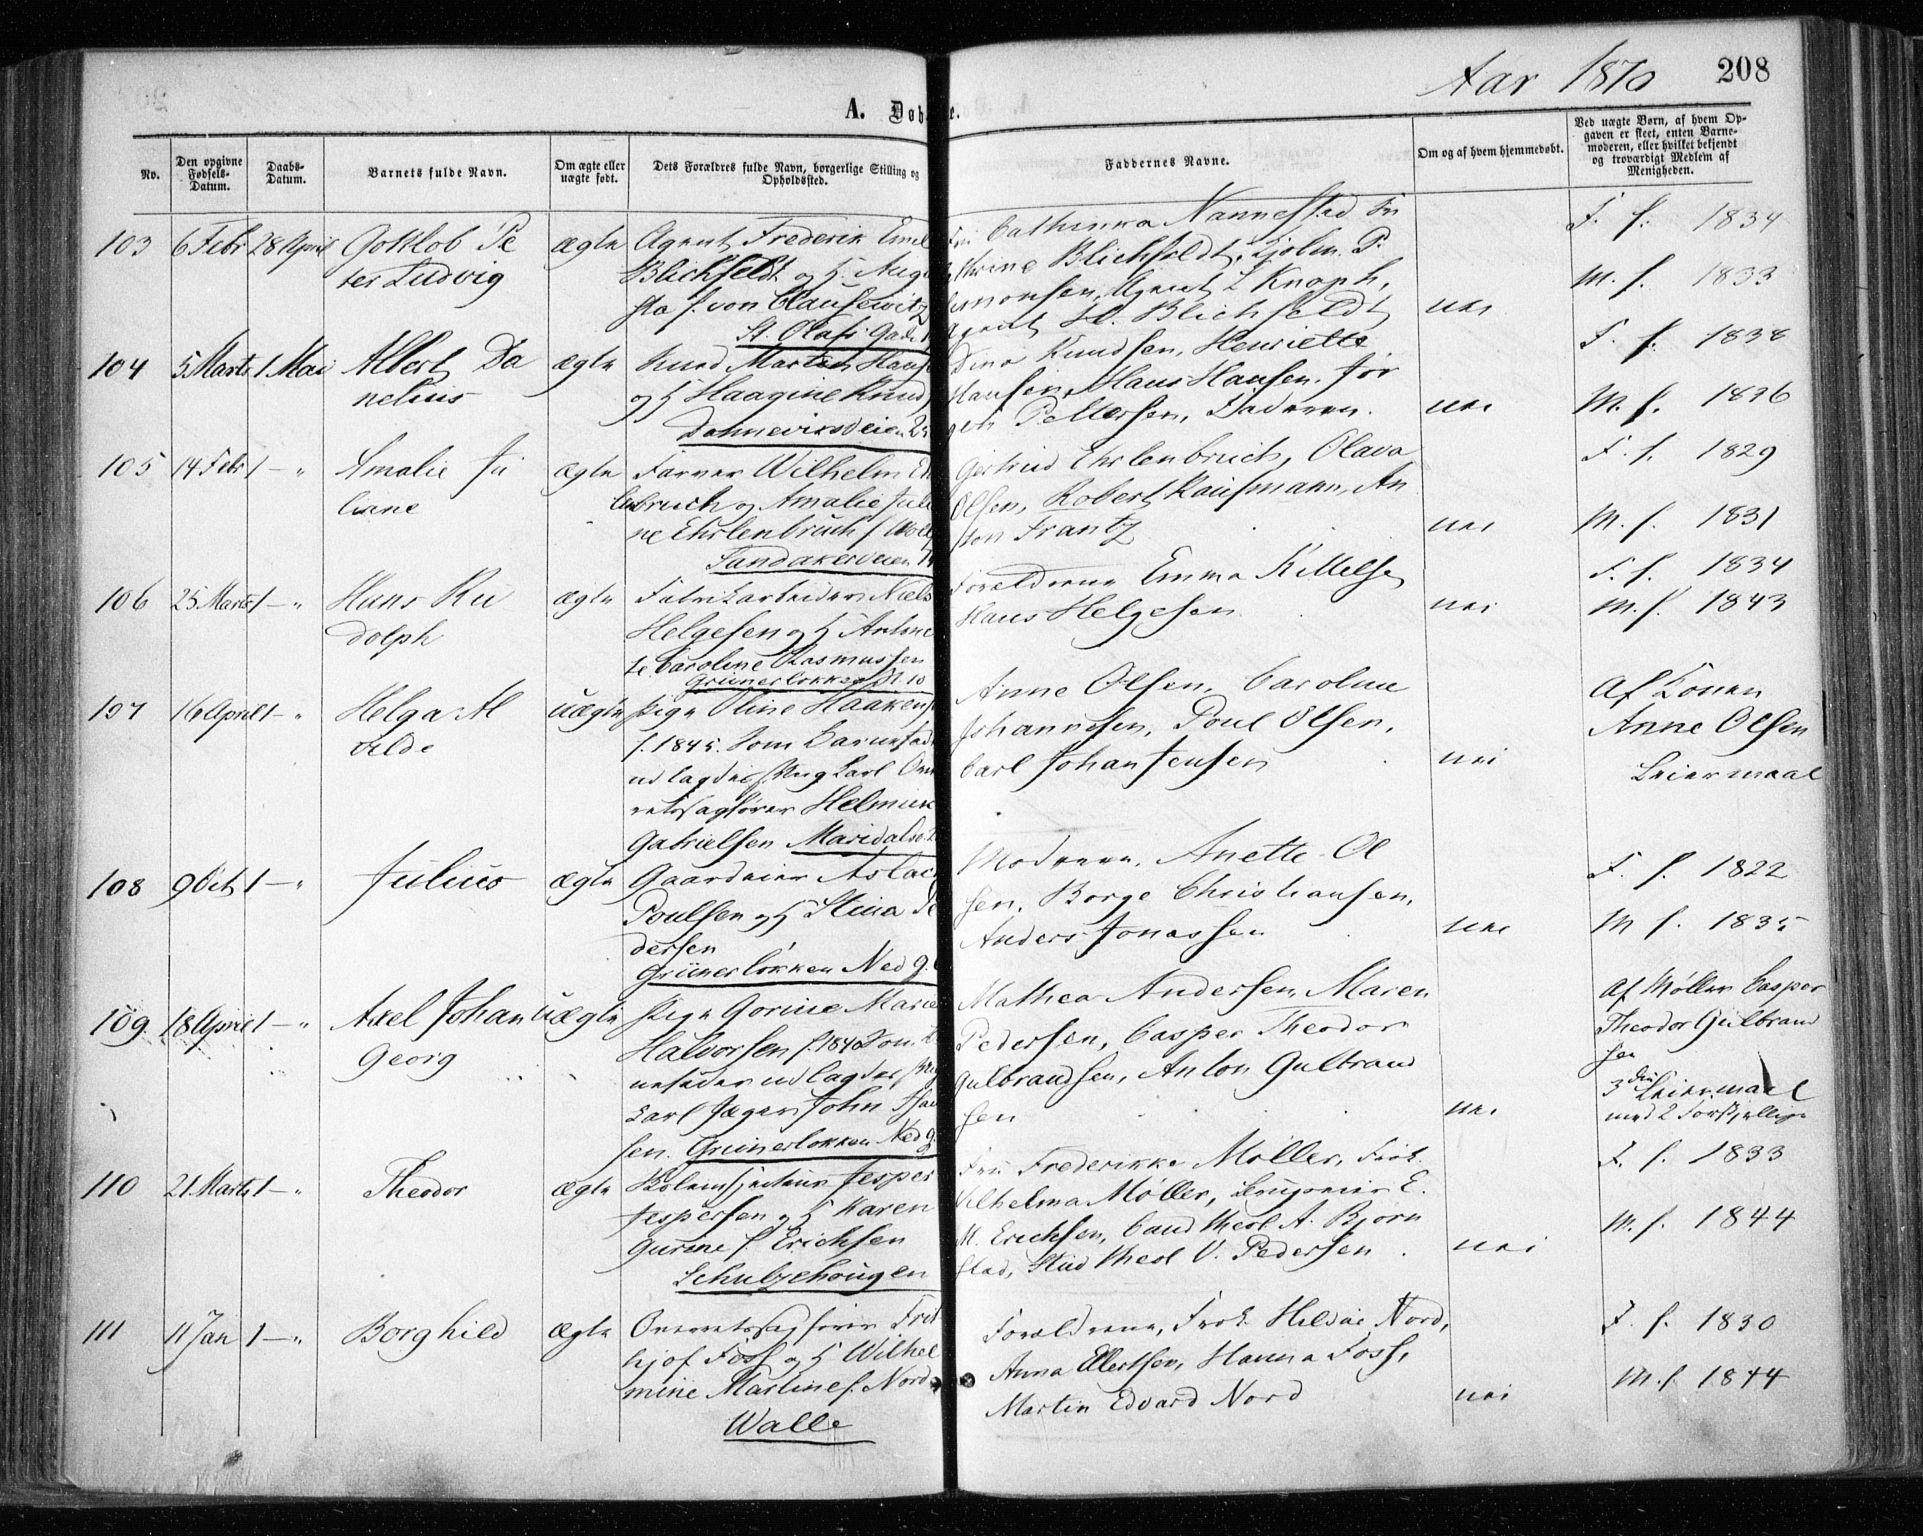 Aar 1870 208
A. Døb e.
No.
Den opgivne Fødsels-Datum.
Daabs-Datum.
Barnets fulde Navn.
Om ægte eller uægte født.
Dets Forældres fulde Navn, borgerlige Stilling og Opholdssted.
Faddernes Navne.
Om og af hvem hjemmedøbt.
Ved uægte Børn, af hvem Opgaven er skeet, enten Barnemoderen, eller hvilket bekjendt og troværdigt Medlem af Menigheden.
103 6 Febr 28 April Gottlob Pe
ter Ludvig
ægte
Agent Frederik Emil
Blichfeldt og H. Augu
sta f. von Clausewitz
St. Olafs Gade
Fru Cathinka Nannestad Fru
Blichfeldt, Kjøbm. P.
Agent L Knoph,
Agent H. Blichfeldt
nei
F. f. 1834
M. f. 1833
104 5 Marts 1 Mai Albert Da
nelius
ægte
Knud Marten Hans
og H Haagine Knud
Dannevirksveien 2
Dina Knudsen, Henriette
Hansen, Hans Hansen, Jør
gen Pettersen, Faderen.
nei
F. f. 1838
M. f. 1836
105 14 Febr 1 — " Amalie Ju
liane
ægte
Farver Wilhelm Eh
lenbruch og Amalie Julia
ne Ehrlenbruch f
Sandakerveien 1
Gertrud Ehrlenbruch, Olava
Olsen, Robert Kaufmann, An
ton Frantz
nei
F. f. 1829
M. f. 1831
106 25 Marts 1 — " Hans Ru
dolph
ægte
Fabrikarbeider Niels
Helgesen og H Antone
te Caroline Rasmussen
Grünerløkken N. 10
Forældrene Emma Kittelse
Hans Helgesen
nei
F. f. 1834
M. f. 1843
107 16 April 1 — " Helga Al
vilde
uægte
Pige Oline Haakens
f. 1845. Som Barnefad
udlagdes Ung Karl Over
retssagfører Helmick
Gabrielsen Maridals
Anne Olsen, Caroline
Johannesen, Poul Olsen,
Carl Johan Jensen
nei
Af Konen
Anne Olsen
Leiermaal
108 9 Oct 1 — " Julius
ægte
Gaardeier Aslac
Poulsen og H Stina Pe
dersen
Grünerløkken Ned g.
Moderen, Anette Ol
sen, Borge Christiansen,
Anders Jonassen
nei
F. f. 1822
M f. 1835
109. 18 April 1 — " Axel Johan
Georg
uægte
Pige Gorine Marie
Halvorsen f. 1840 Som B
nefader udlagdes Ung
Karl Jæger John
sen. Grünerløkken Ned g.
Mathea Andersen, Maren
Pedersen, Casper Theodor
Gulbrandsen, Anton Gulbrand
sen
nei
Af Møller Casper
Theodor Gulbrand
sen
3 die Leiermaal
med 2 Forskjellige
110 21 Marts 1 — " Theodor
ægte
Jesper
Jespersen og H Karen
Gurine f. Erichsen
Schultzehougen
Fru Frederikke Møller, Frøk.
Vilhelma Møller, E.
M. Erichsen, Cand theol A. Bjørn
stad, Stud theol V. Pedersen
nei
F. f. 1833
M. f. 1844
111 11 Jan 1 — " Borghild
ægte
Overretssagfører Frit
hjof Foss og H Wilhel
mine Martine f. Nord
Walle
Forældrene, Frøk. Hilda Nord,
Anna Ellertsen, Hanna Foss,
Martin Edvard Nord
nei
F. f. 1830
M. f. 1844